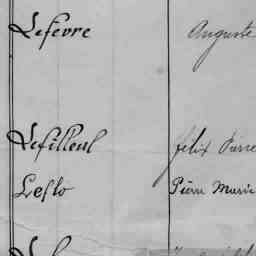 Lefevre Auguste
Lefilleul félix Pierre
Leflo Pierre Marie